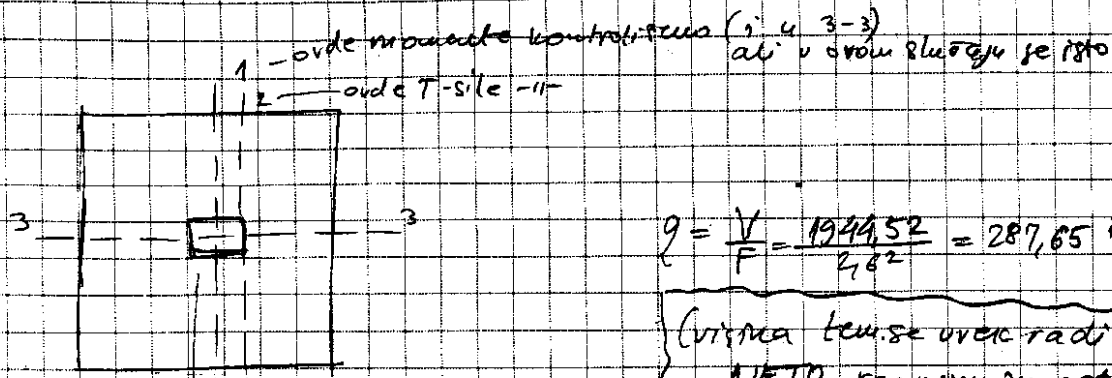 1 - ovde momente kontrolišemo (i u 3-3)
ali u ovom slučaju je isto
2 - ovde T-sile -11-
3 3
q = V/F = 1944,52/2,6² = 287,65
(visina tem. se uvek radi
NETO